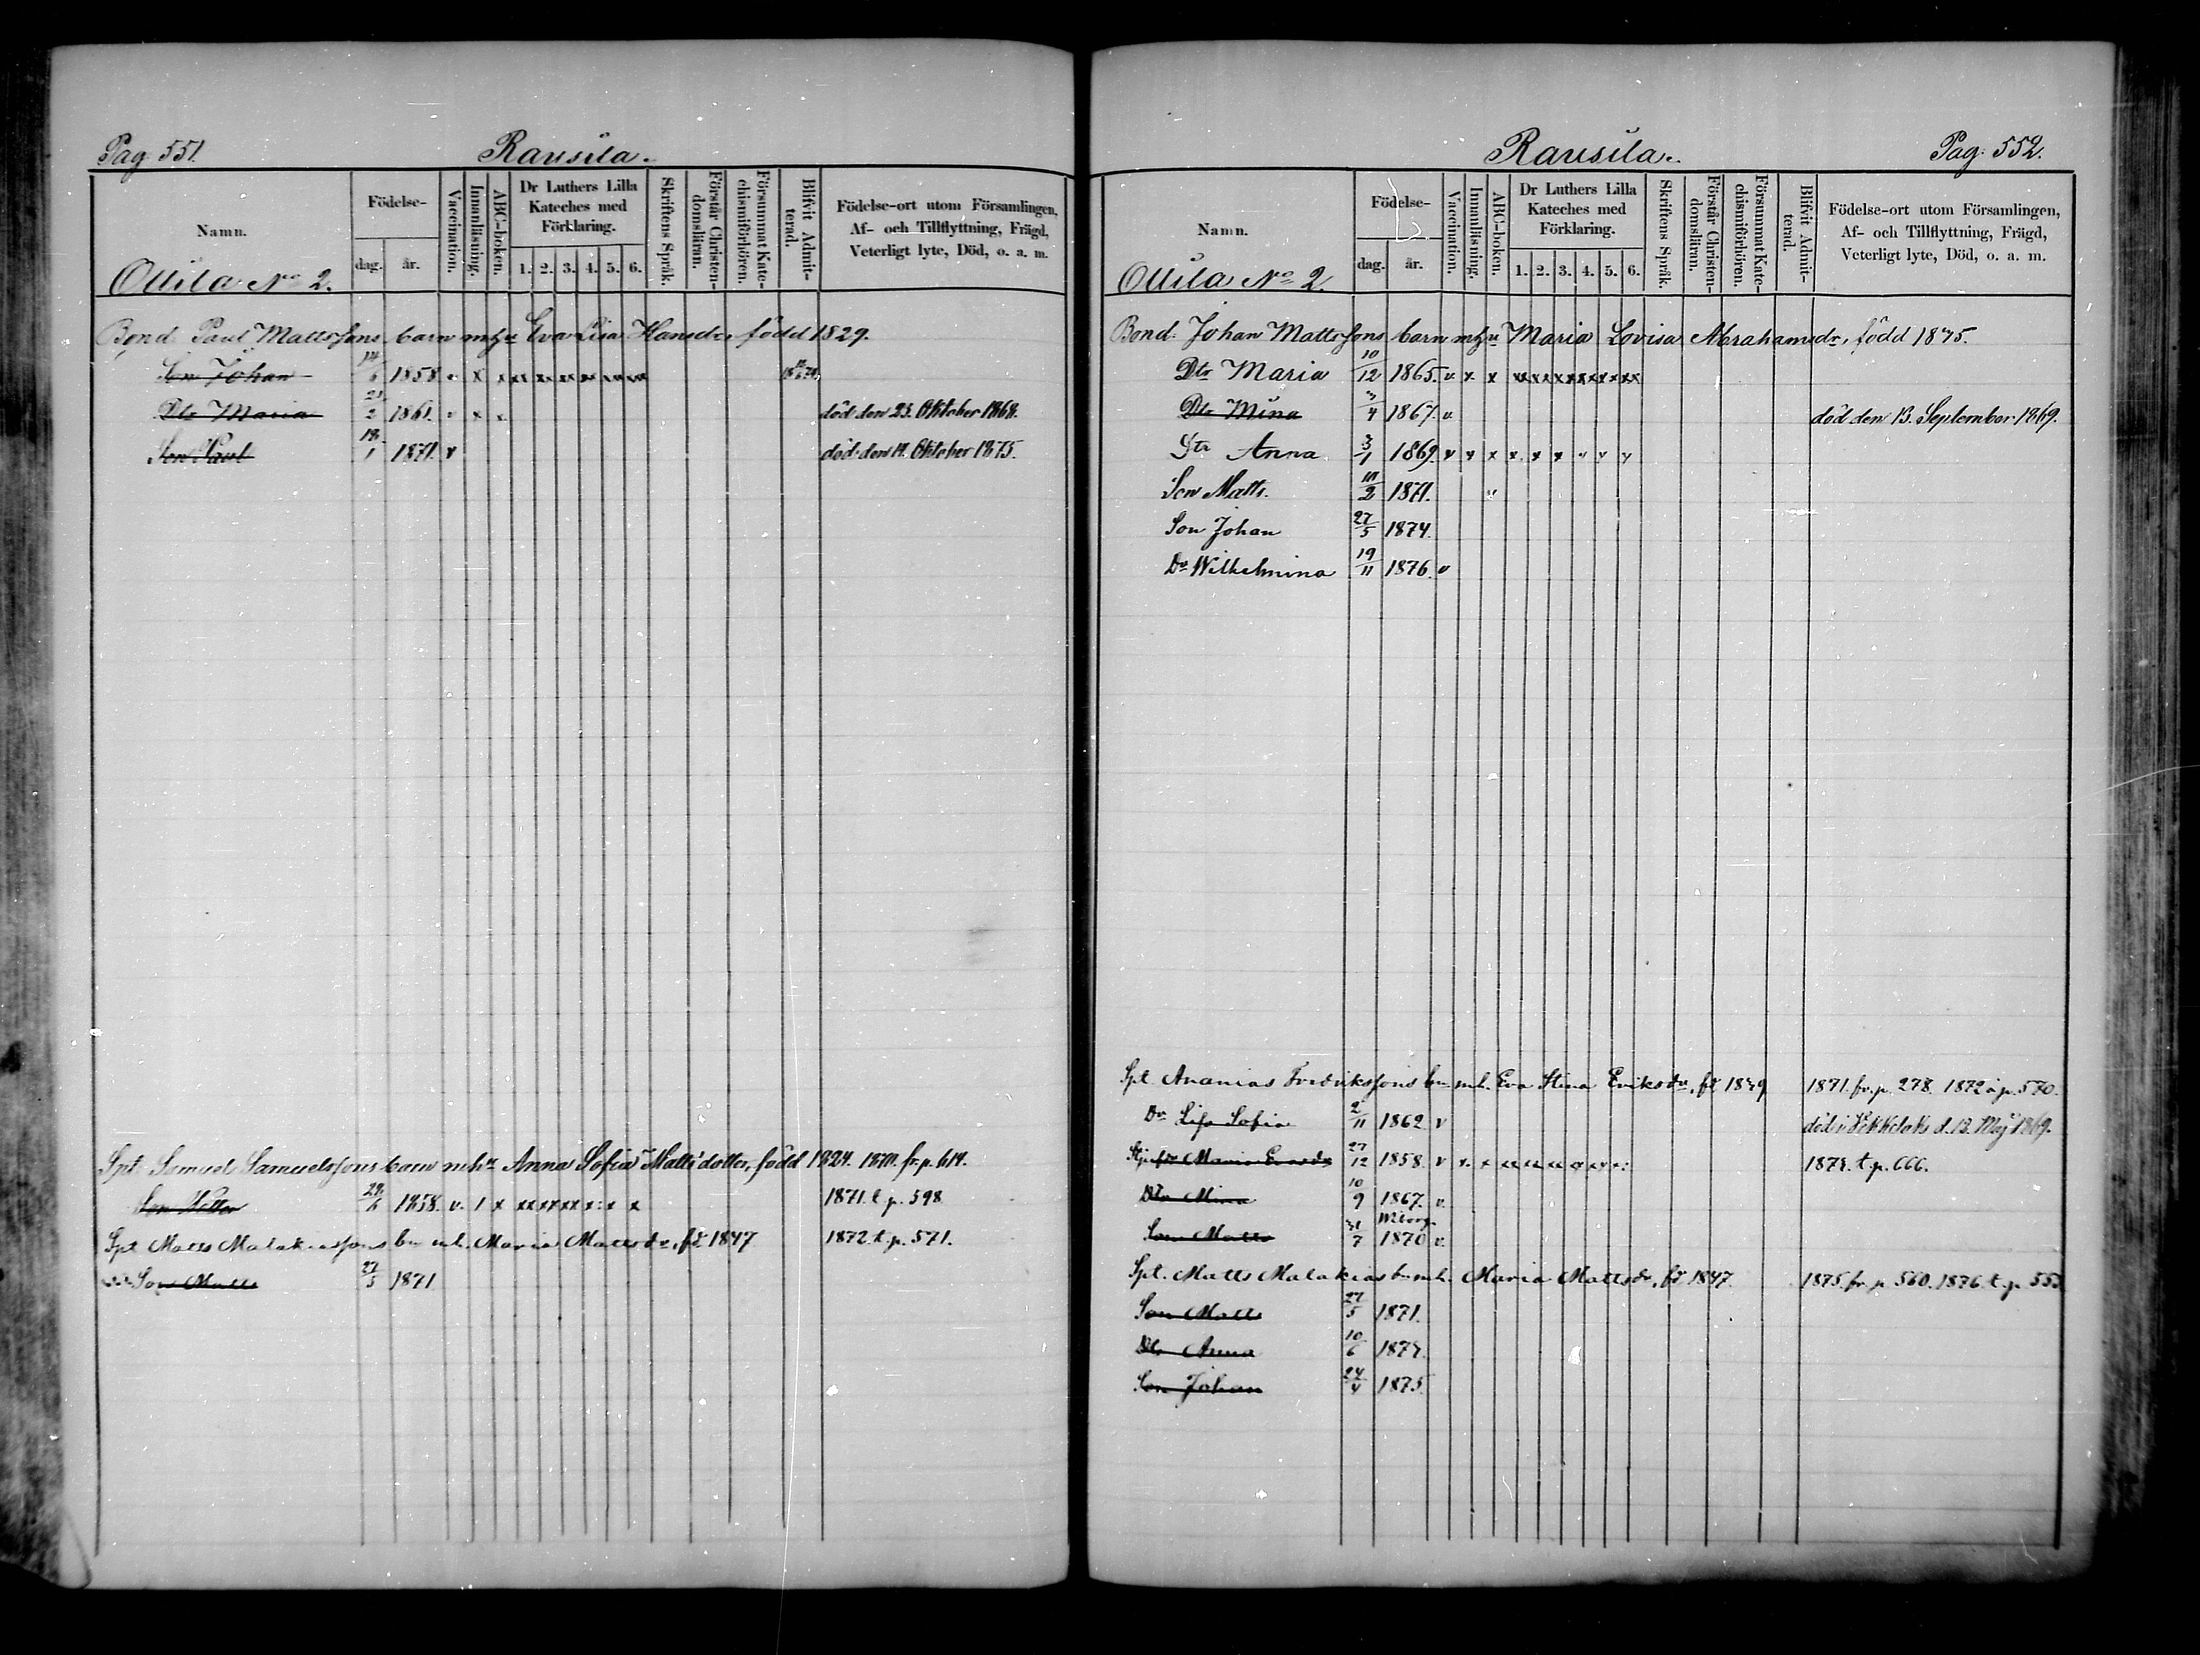 Pag. 551. Rausila.
Namn. Födelse- dag. år. Vaccination. Innanläsning. ABC-boken. Dr Luthers Lilla Kateches med Förklaring. 1. 2. 3. 4. 5. 6. Skriftens Språk. Förstår Christendomsläran. Försummat Katechismiförhören. Blifvit Admitterad. Födelse-ort utom Församlingen, Af- och Tillflyttning, Frägd, Veterligt lyte, Död, o. a. m.
Ollila No 2.
Bond. Paul Mattssons barn mhu Eva Lisa Hansdr, född 1829.
Son Johan 14/6 1858. v x x xx xx xx xx xx xx
Dtr Maria 21/2 1861. v x x död den 23. Oktober 1868.
Son Paul 19/1 1871. v död den 19. Oktober 1875.
Spt. Samuel Samuelssons barn mhu Anna Sofia Mattsdotter, född 1824. 1870. fr. p. 614.
28/6 1858. v. 1 x 1871. t. p. 598
Spt Matts Malakiassons bn mh. Maria Mattsdr, fd 1847 1872. t. p. 571.
Son Matts 27/5 1871
Rausila. Pag. 552.
Namn. Födelse- dag. år. Vaccination. Innanläsning. ABC-boken. Dr Luthers Lilla Kateches med Förklaring. 1. 2. 3. 4. 5. 6. Skriftens Språk. Förstår Christendomsläran. Försummat Katechismiförhören. Blifvit Admitterad. Födelse-ort utom Församlingen, Af- och Tillflyttning, Frägd, Veterligt lyte, Död, o. a. m.
Ollila No 2.
Bond. Johan Mattssons barn mhu Maria Lovisa Abrahamsdr, född 1845.
Dtr Maria 10/12 1865. v x x xx xx xx xx xx xx
Dtr Mina 3/4 1867. v. död den 13. September 1869.
Dtr Anna 3/1 1869. v x x x x x v v v
Son Matts. 10/2 1871. v
Son Johan 27/5 1874.
Dr Wilhelmina 19/11 1876. v
Spt. Ananias Fredrikssons bn mh. Eva Stina Eriksdr, fd 1839 1871. fr. p. 278. 1872 å p. 570.
Dr Lisa Sofia 2/11 1862 v död i d. 13. Maj 1869.
Maria Evasdr 27/12 1858. v x x 1874. t. p. 666.
Dtr Mina 10/9 1867. v.
Son Matts 31/7 1870 v.
Spt. Matts Malakias bn mh. Maria Mattsdr, fd 1847. 1875. fr. p. 560. 1876. t. p. 553
Son Matts 27/5 1871.
Dtr Anna 10/6 1874.
Son Johan 24/4 1875